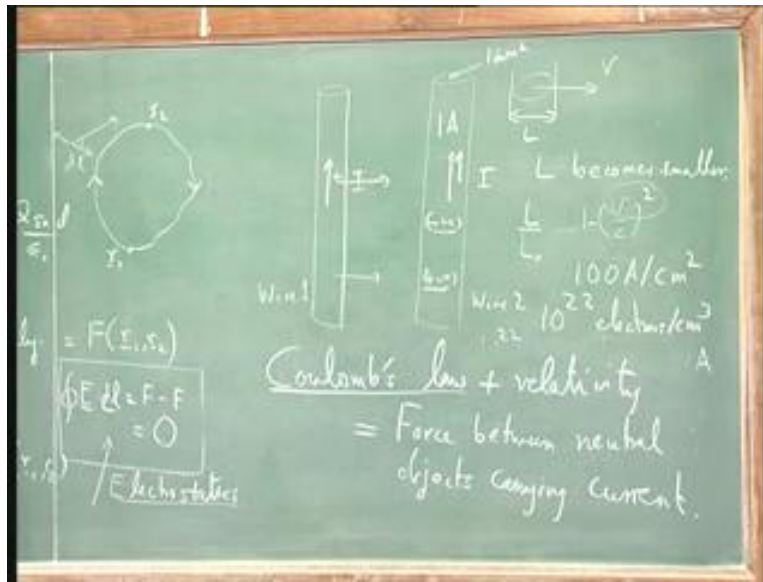 r₂
dl
r₁
= F(r₁,r₂)
∮E dl = F - F
= 0
Electrostatics
I
Wire 1
1cm²
1A
I
Wire 2
V
L
L becomes smaller
L/L₀
1-(v/c)²
100A/cm²
10²² electrons/cm³
22
A
Coulomb's law + relativity
= Force between neutral
objects carrying current.